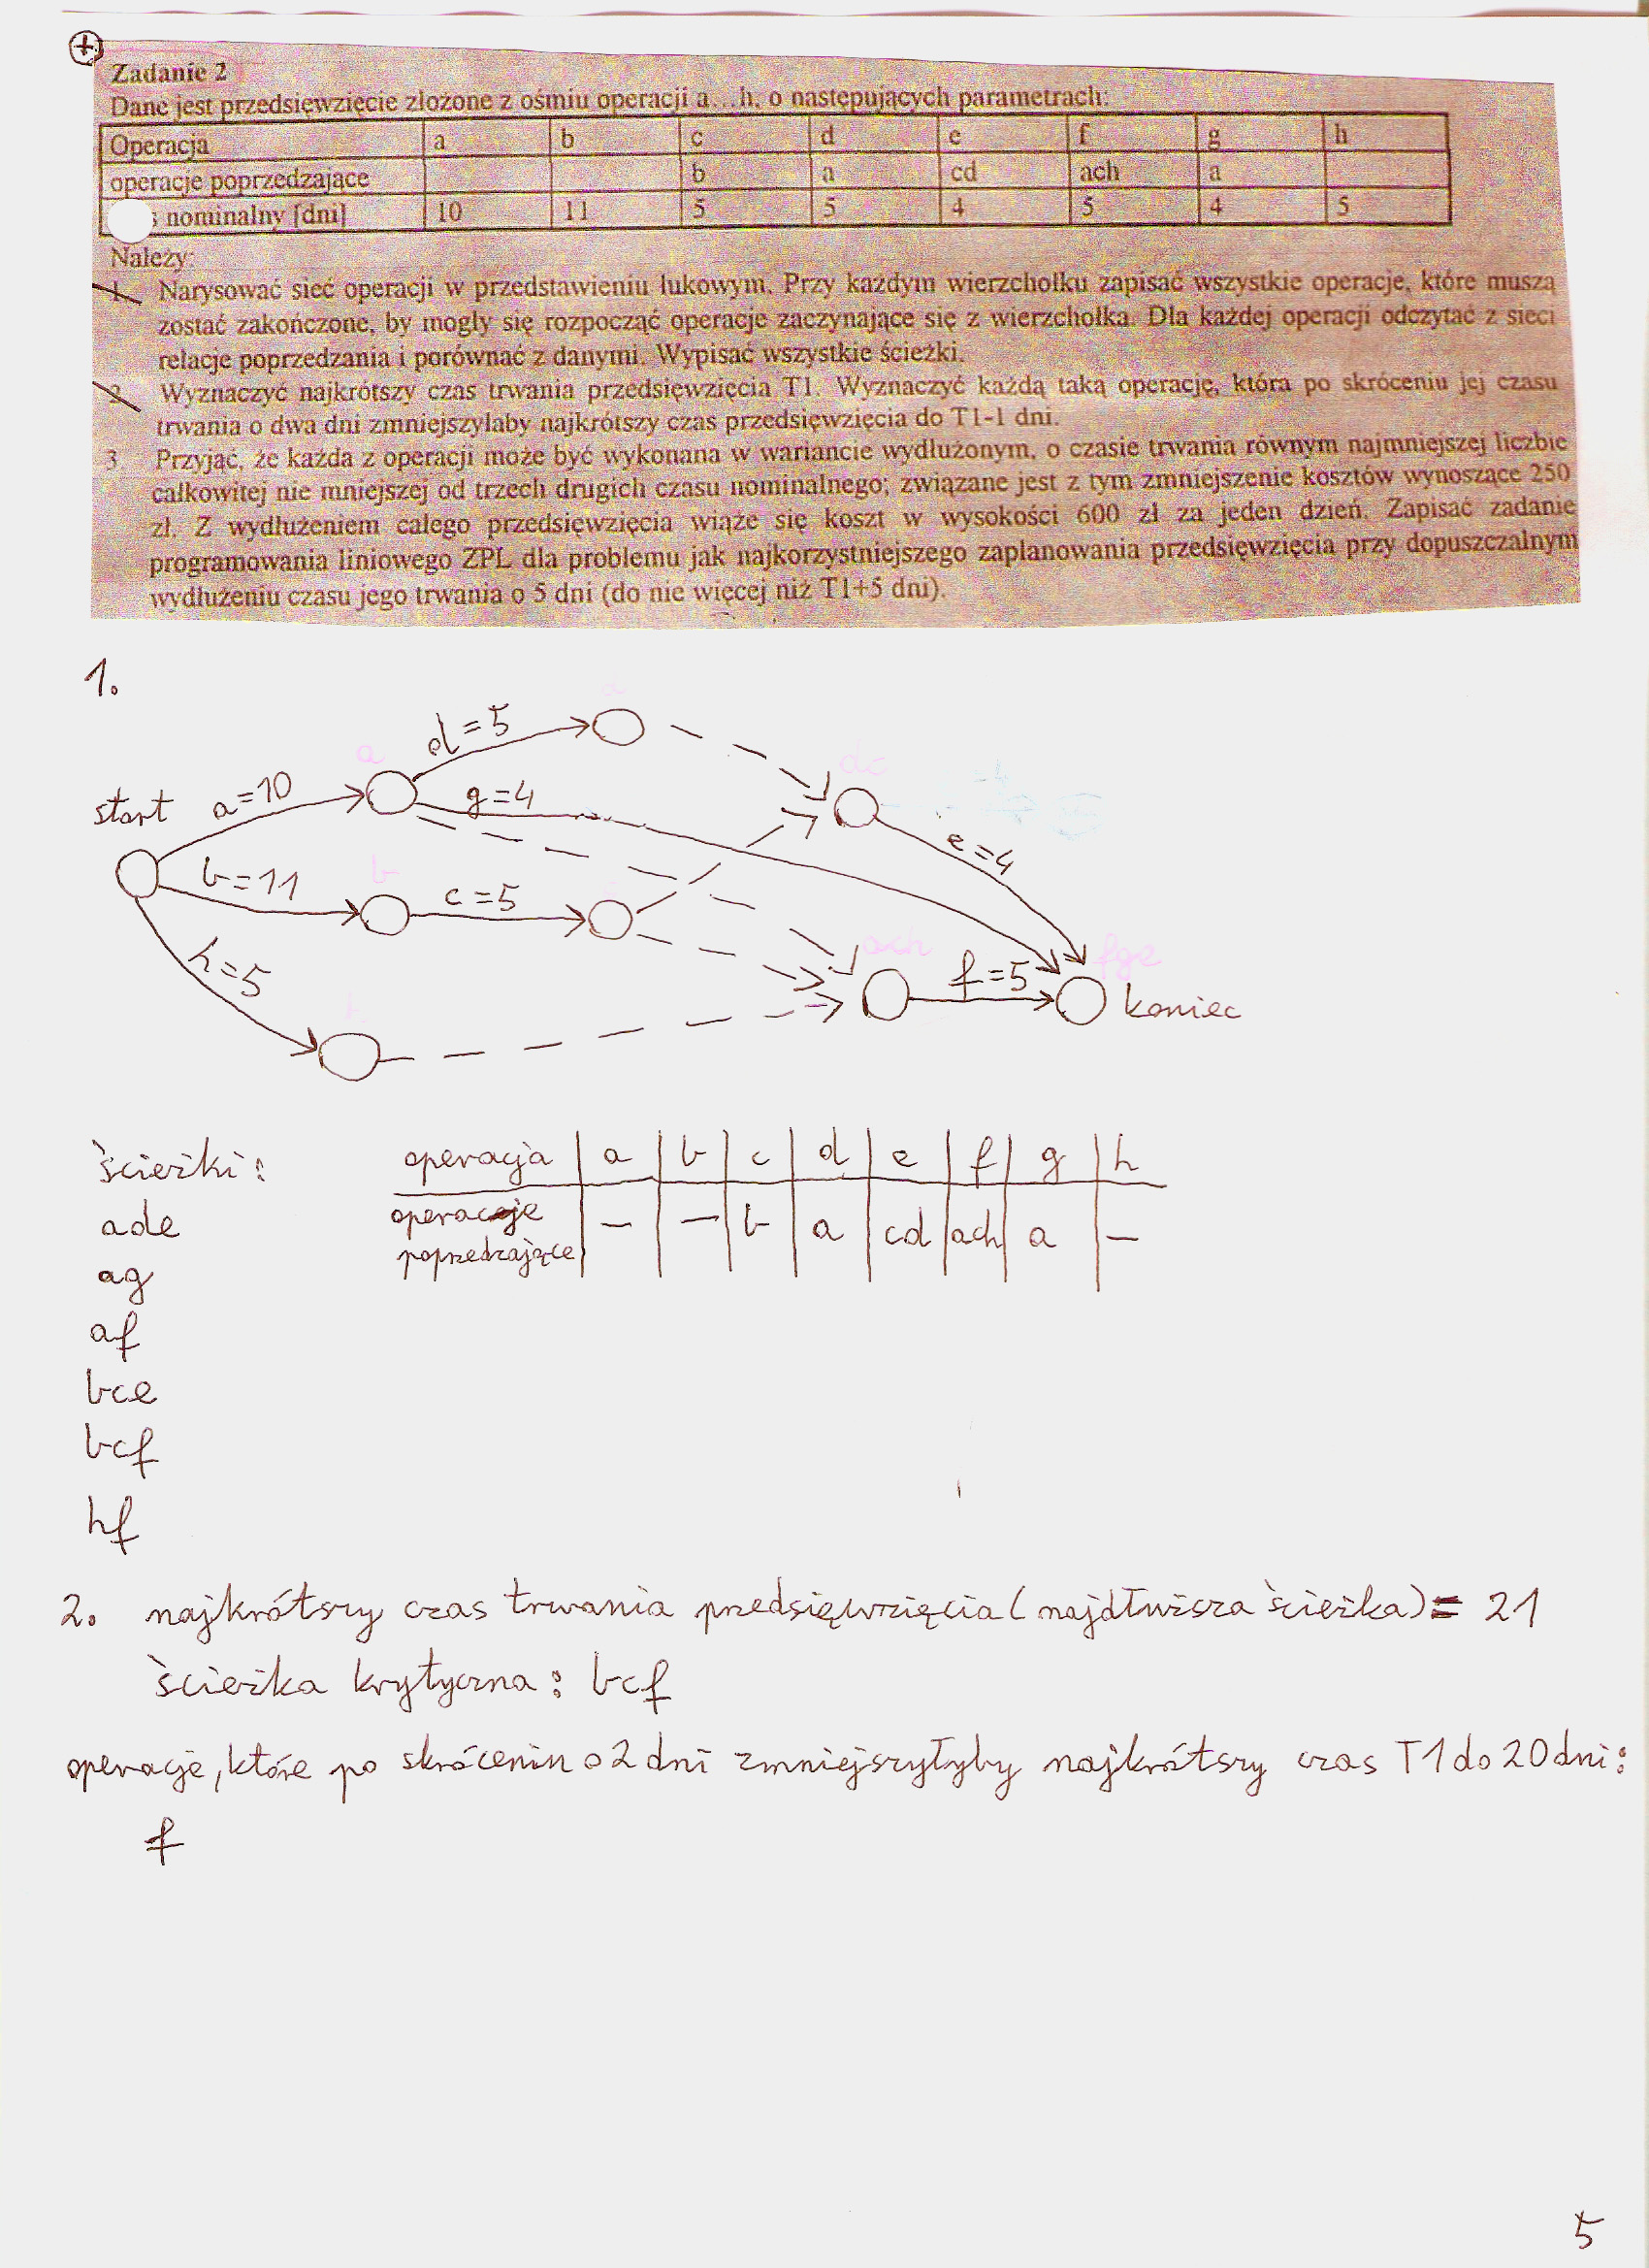 Zadanie 2
Dane jest przedsięwzięcie złożone z ośmiu operacji a...h, o następujących parametrach:
Operacja a b c d e f g h
operacje poprzedzające b a cd ach a
nominalny [dni] 10 11 5 5 4 5 4 5
Należy:
1. Narysować sieć operacji w przedstawieniu łukowym. Przy każdym wierzchołku zapisać wszystkie operacje, które muszą
zostać zakończone, by mogły się rozpocząć operacje zaczynające się z wierzchołka. Dla każdej operacji odczytać z sieci
relacje poprzedzania i porównać z danymi. Wypisać wszystkie ścieżki.
2. Wyznaczyć najkrótszy czas trwania przedsięwzięcia T1. Wyznaczyć każdą taką operację, która po skróceniu jej czasu
trwania o dwa dni zmniejszyłaby najkrótszy czas przedsięwzięcia do T1-1 dni.
3. Przyjąć, że każda z operacji może być wykonana w wariancie wydłużonym, o czasie trwania równym najmniejszej liczbie
całkowitej nie mniejszej od trzech drugich czasu nominalnego; związane jest z tym zmniejszenie kosztów wynoszące 250
zł. Z wydłużeniem całego przedsięwzięcia wiąże się koszt w wysokości 600 zł za jeden dzień. Zapisać zadanie
programowania liniowego ZPL dla problemu jak najkorzystniejszego zaplanowania przedsięwzięcia przy dopuszczalnym
wydłużeniu czasu jego trwania o 5 dni (do nie więcej niż T1+5 dni).
1.
d=5
a
dc
start a=10 g=4
e=4
b=11 b c=5
h=5
ach
f=5 fge
koniec
ścieżki:
ade
ag
af
bce
bcf
hf
operacja a b c d e f g h
operacje
poprzedzające – – b a cd ach a –
2. najkrótszy czas trwania przedsięwzięcia (najdłuższa ścieżka) = 21
ścieżka krytyczna: bcf
operacje, które po skróceniu o 2 dni zmniejszyłyby najkrótszy czas T1 do 20 dni:
f
5